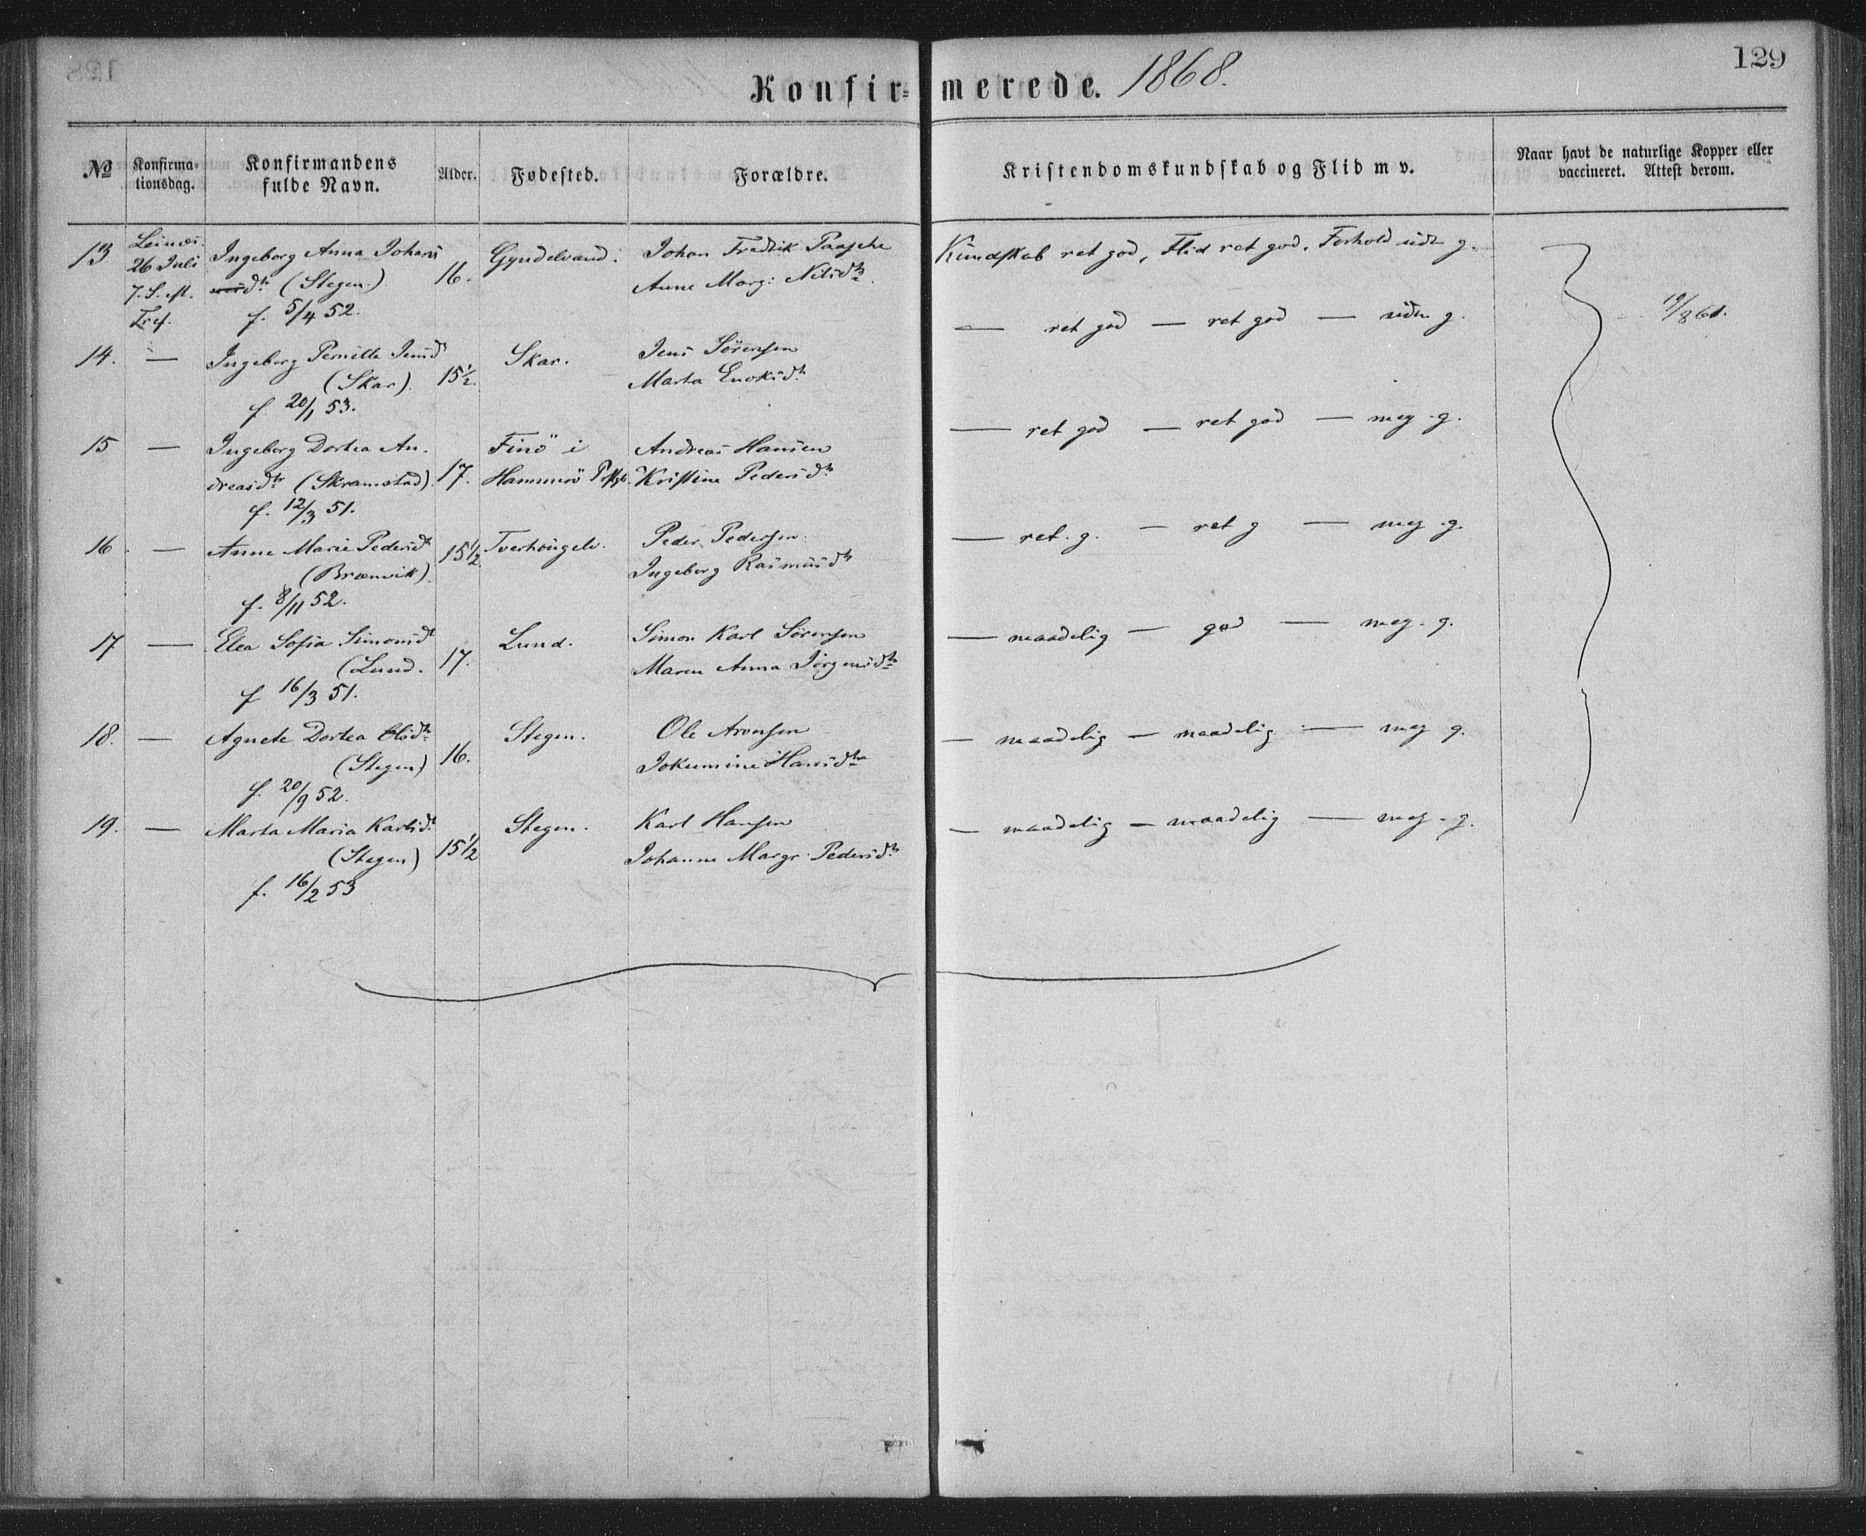 129
Konfirmerede. 1868.
№ Konfirma-tionsdag. Konfirmandens fulde Navn. Alder. Fødested. Forældre. Kristendomskundskab og Flid m v. Naar havt de naturlige Kopper eller vaccineret. Attest derom.
13 Leines. Ingeborg Anna Johans 16. Gyndelvand. Johan Fredrik Paasche Kundskab ret god, Flid ret god. Forhold udm g.
26 Juli dtr (Stegen) Anne Marg: Nilsdtr.
7. S. eft. f. 5/4 52.
Tref.
— ret god — ret god — udm g. 19/8 61.
14. — Ingeborg Pernille Jensdtr 15½. Skar. Jens Sörensen
(Skar). Marta Enoksdtr
f. 20/1 53.
— ret god — ret god — meg. g.
15 — Ingeborg Dortea An- 17. Finö i Andreas Hansen
dreasdtr (Skramstad) Hammerö Kristine Pedersdtr
f. 12/3 51.
— ret. g. — ret g — meg. g.
16 — Anne Marie Pedersdtr 15½ Peder Pedersen
(Brænvik) Ingeborg Rasmusdtr
f. 8/11 52.
17 — Elea Sofia Simonsdtr 17. Lund. Simon Karl Sörensen — maadelig — god — meg. g.
(Lund. Maren Anna Jörgensdtr
f 16/3 51.
18. — Agnete Dortea Olsdtr 16. Stegen. Ole Aronsen — maadelig — maadelig — meg g.
(Stegen) Jokumine Hansdtr
f. 20/9 52.
19. — Marta Maria Karlsdtr 15½ Stegen. Karl Hansen — maadelig — maadelig — meg. g.
(Stegen) Johanne Margr. Pedersdtr
f. 16/2 53